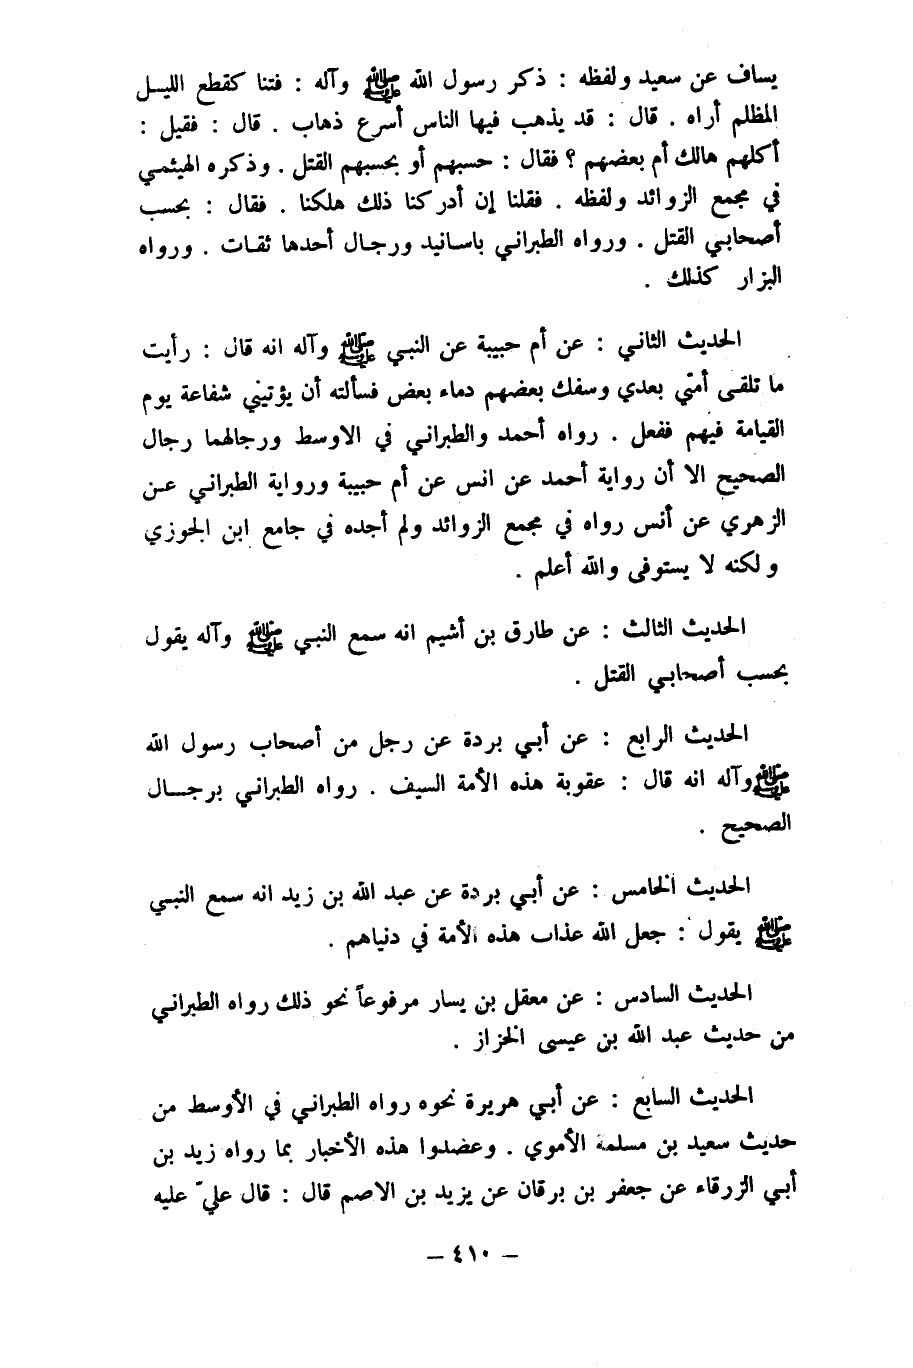 يساف عن سعيد ولفظه : ذكر رسول الله ﷺ وآله : فتنا كقطع الليل
المظلم أراه . قال : قد يذهب فيها الناس أسرع ذهاب . قال : فقيل :
أكلهم هالك أم بعضهم ؟ فقال : حسبهم أو بحسبهم القتل . وذكره الهيثمي
في مجمع الزوائد ولفظه . فقلنا إن أدركنا ذلك هلكنا . فقال : بحسب
أصحابي القتل . ورواه الطبراني باسانيد ورجال أحدها ثقات . ورواه
البزار كذلك .
الحديث الثاني : عن أم حبيبة عن النبي ﷺ وآله انه قال : رأيت
ما تلقى أمتي بعدي وسفك بعضهم دماء بعض فسألته أن يؤتيني شفاعة يوم
القيامة فيهم ففعل . رواه أحمد والطبراني في الاوسط ورجالهما رجال
الصحيح الا أن رواية أحمد عن انس عن أم حبيبة ورواية الطبراني عن
الزهري عن أنس رواه في مجمع الزوائد ولم أجده في جامع ابن الجوزي
ولكنه لا يستوفى والله أعلم .
الحديث الثالث : عن طارق بن أشيم انه سمع النبي ﷺ وآله يقول
بحسب أصحابي القتل .
الحديث الرابع : عن أبي بردة عن رجل من أصحاب رسول الله
ﷺ وآله انه قال : عقوبة هذه الأمة السيف . رواه الطبراني برجال
الصحيح .
الحديث الخامس : عن أبي بردة عن عبد الله بن زيد انه سمع النبي
ﷺ يقول : جعل الله عذاب هذه الأمة في دنياهم .
الحديث السادس : عن معقل بن يسار مرفوعاً نحو ذلك رواه الطبراني
من حديث عبد الله بن عيسى الخزاز .
الحديث السابع : عن أبي هريرة نحوه رواه الطبراني في الأوسط من
حديث سعيد بن مسلمة الأموي . وعضدوا هذه الأخبار بما رواه زيد بن
أبي الزرقاء عن جعفر بن برقان عن يزيد بن الاصم قال : قال عليّ عليه
– ٤١٠ –